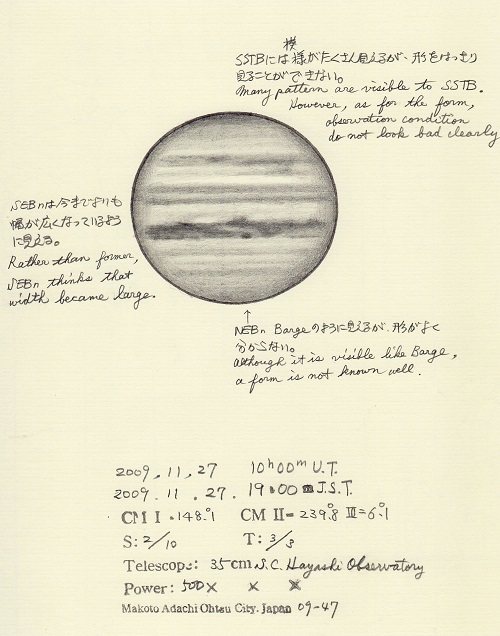 模
SSTBには様がたくさん見えるが、形をはっきり
見ることができない。
Many pattern are visible to SSTB.
However, as for the form,
observation condition
do not look bad clearly
SEBnは今までよりも
幅が広くなっているよう
に見える。
Rather than former,
SEBn thinks that
width became large.
↑
NEBn Bargeのように見えるが、形がよく
分からない。
Although it is visible like Barge,
a form is not known well.
2009, 11, 27 10h00m U.T.
2009. 11. 27. 19:00 m J.S.T.
CM I = 148.°1 CM II = 239.°8 III = 6.°1
S: 2/10 T: 3/3
Telescope: 35cm S.C. Hayashi Observatory
Power: 500× × ×
Makoto Adachi Ohtsu City. Japan 09-47